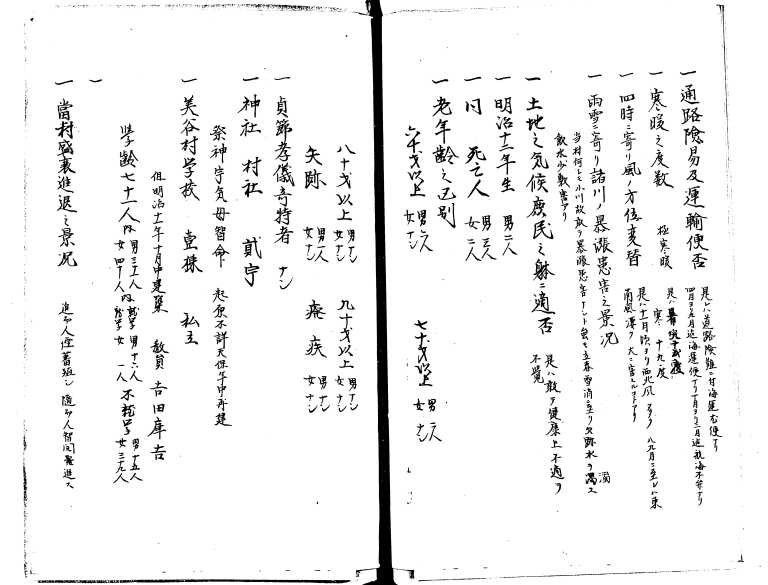 一 通路險易及運輸便否
是レハ道路険難ニ付海運ヲ便ナリ
四月ヨリ九月迄海運便ナリ十月ヨリ三月迄航海不弁ナリ
一 寒暖之度数
極寒暖
是ハ暑
寒 十九度
一 四時ニ寄リ風ノ方位変替
是ハ十月頃ヨリ西北風 多ク 八九月ニ至レハ東
南風 大ニ害
一 雨雪ニ寄リ諸川ノ暴漲患害之景况
当村何レモ小川故敢テ暴漲患害ナシト雖モ立春雪消ニ至リ 水ヲ濁ス
飲水少敷害アリ
一 土地之気候庶民之躰ニ適否
是ハ敢テ健康上不適ヲ
不覚
一 明治十二年生 男二人
一 同 死亡人 男三人 女二人
一 老年齢之区別
六十才以上 男六人 女ナシ
七十才以上 男一人 女ナシ
八十才以上 男ナシ 女ナシ
九十才以上 男ナシ 女ナシ
矢跡 男一人 女ナシ
癈疾 男ナシ 女ナシ
一 貞節孝儀奇特者 ナシ
一 神社 村社 貳宇
祭神宇気母智命 起原不詳天保年中再建
一 美谷村学校 壹棟 私立
但明治十一年十月中建築 教員 吉田庫吉
学齢七十一人内 男三十一人 女四十人 内 就学 男十六人 就学 女一人 不就学 男十五人 女三十九人
一
一 當村盛衰進退之景况
追而人煙蕃殖シ随而人智開発進ス